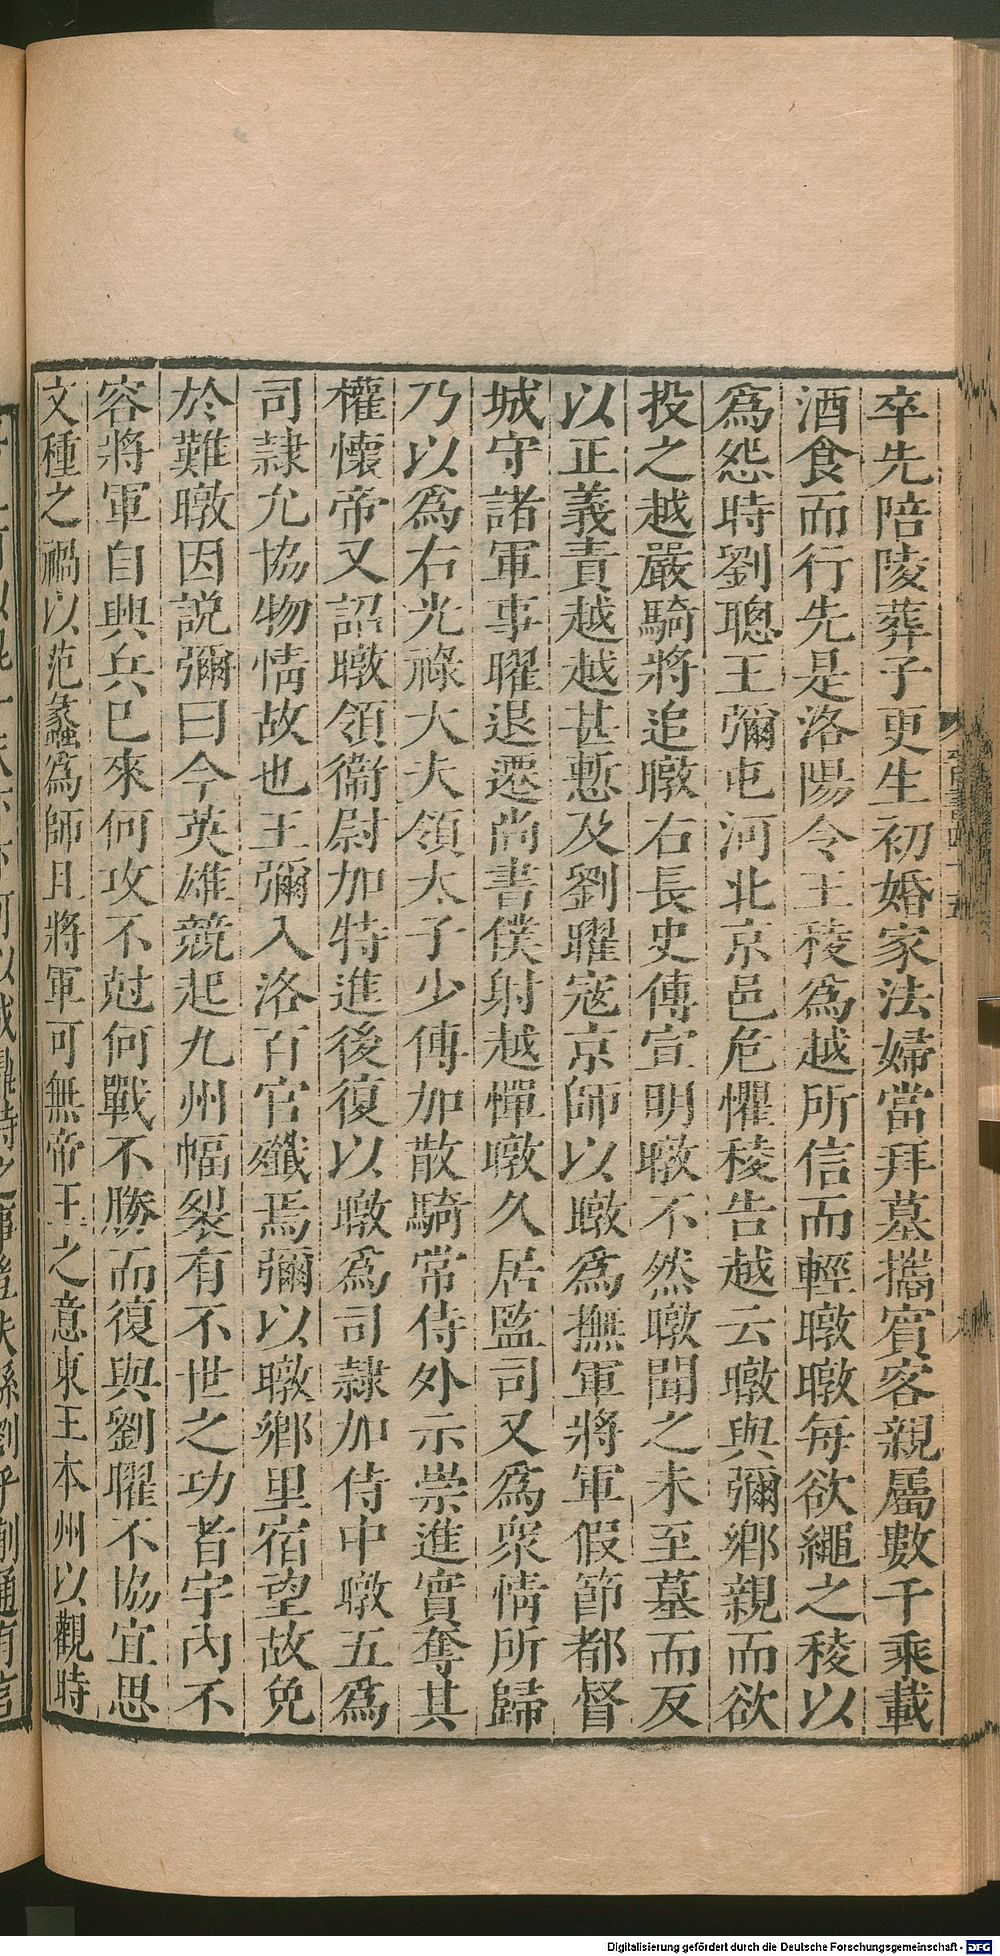 卒先陪陵葬子更生初婚家法婦當拜墓攜賓客親屬數千乘載
酒食而行先是洛陽令王稜爲越所信而輕暾暾每欲繩之稜以
爲怨時劉聰王彌屯河北京邑危懼稜告越云暾與彌鄉親而欲
投之越嚴騎將追暾右長史傅宣明暾不然暾聞之未至墓而反
以正義責越越甚慙及劉曜寇京師以暾爲撫軍將軍假節都督
城守諸軍事曜退遷尚書僕射越憚暾久居監司又爲衆情所歸
乃以爲右光祿大夫領太子少傅加散騎常侍外示崇進實奪其
權懷帝又詔暾領衞尉加特進後復以暾爲司隷加侍中暾五爲
司隷允協物情故也王彌入洛百官殲焉彌以暾鄉里宿望故免
於難暾因說彌曰今英雄競起九州幅裂有不世之功者宇內不
容將軍自興兵已來何攻不尅何戰不勝而復與劉曜不協宜思
文種之禍以范蠡爲師且將軍可無帝王之意東王本州以觀時
Digitalisierung gefördert durch die Deutsche Forschungsgemeinschaft - DFG